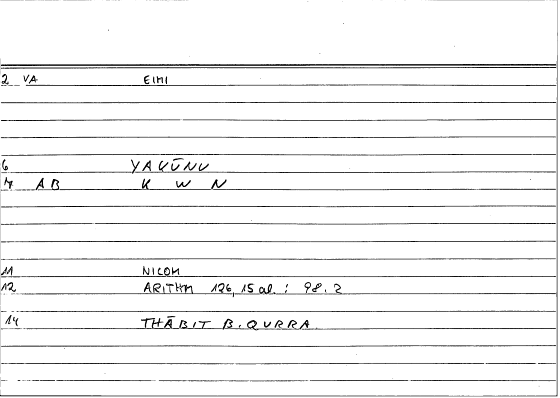 2 VA EIMI
6 YAKŪNU
7 AB K W N
11 NICOM
12 ARITHM 126, 15 al. : 98. 2
14 THĀBIT B. QURRA